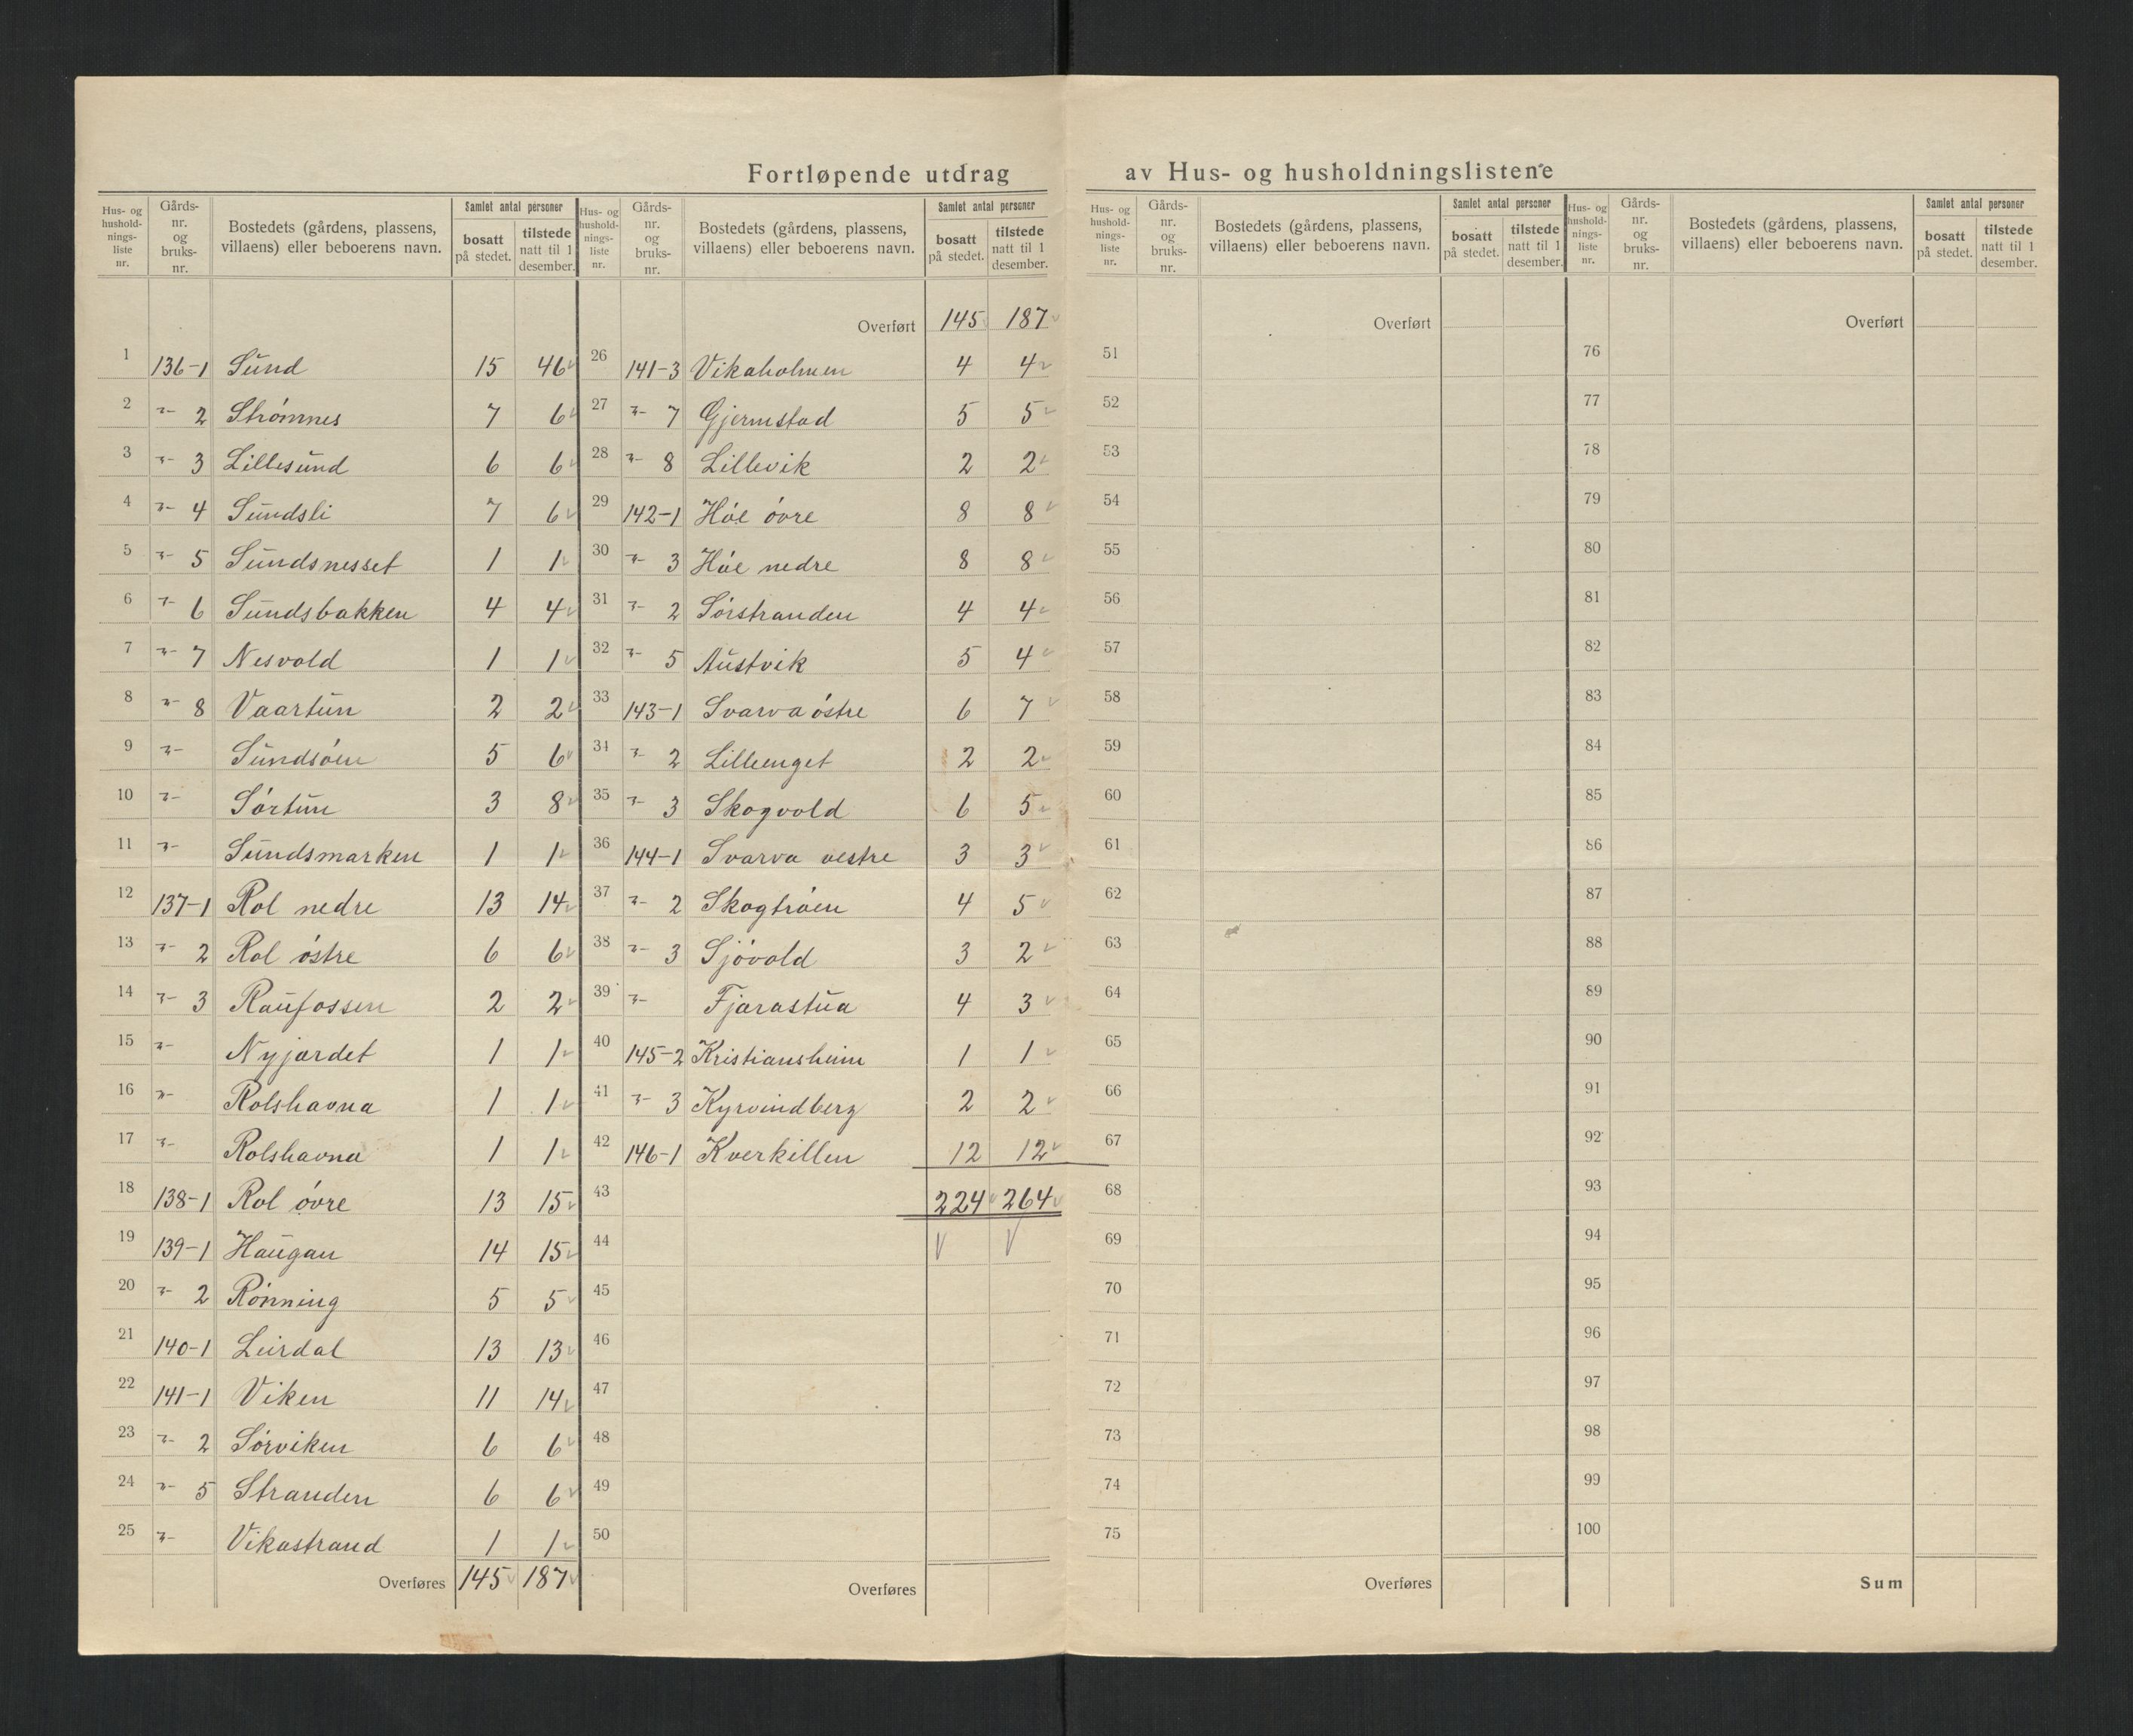 Fortløpende utdrag av Hus- og husholdningslistene
Hus- og hushold-nings-liste nr. | Gårds-nr. og bruks-nr. | Bostedets (gårdens, plassens, villaens) eller beboerens navn. | Samlet antal personer | bosatt på stedet. | tilstede natt til 1 desember.
1 136-1 Sund 15 46
2 "- 2 Strömnes 7 6
3 "- 3 Lillesund 6 6
4 "- 4 Sundsli 7 6
5 "- 5 Sundsnesset 1 1
6 "- 6 Sundsbakken 4 4
7 "- 7 Nesvold 1 1
8 "- 8 Vaartun 2 2
9 "- Sundsöen 5 6
10 "- Sörtun 3 8
11 "- Sundsmarken 1 1
12 137-1 Rol nedre 13 14
13 "- 2 Rol östre 6 6
14 "- 3 Raufossen 2 2
15 "- Nyjordet 1 1
16 "- Rolshavna 1 1
17 "- Rolshavna 1 1
18 138-1 Rol övre 13 15
19 139-1 Haugan 14 15
20 "- 2 Rönning 5 5
21 140-1 Leirdal 13 13
22 141-1 Viken 11 14
23 "- 2 Sörviken 6 6
24 "- 5 Stranden 6 6
25 "- Vikastrand 1 1
Overføres 145 187
Hus- og hushold-nings-liste nr. | Gårds-nr. og bruks-nr. | Bostedets (gårdens, plassens, villaens) eller beboerens navn. | Samlet antal personer | bosatt på stedet. | tilstede natt til 1 desember.
Overført 145 187
26 141-3 Vikaholmen 4 4
27 "- 7 Gjermstad 5 5
28 "- 8 Lillevik 2 2
29 142-1 Höe övre 8 8
30 "- 3 Höe nedre 8 8
31 "- 2 Sörstranden 4 4
32 "- 5 Austvik 5 4
33 143-1 Svarva östre 6 7
34 "- 2 Lilleenget 2 2
35 "- 3 Skogvold 6 5
36 144-1 Svarva vestre 3 3
37 "- 2 Skogtröen 4 5
38 "- 3 Sjövold 3 2
39 "- Fjærastua 4 3
40 145-2 Kristiansheim 1 1
41 "- 3 Kyrvindberg 2 2
42 146-1 Kverkillen 12 12
43 224 264
44
45
46
47
48
49
50
Overføres
Hus- og hushold-nings-liste nr. | Gårds-nr. og bruks-nr. | Bostedets (gårdens, plassens, villaens) eller beboerens navn. | Samlet antal personer | bosatt på stedet. | tilstede natt til 1 desember.
Overført
51
52
53
54
55
56
57
58
59
60
61
62
63
64
65
66
67
68
69
70
71
72
73
74
75
Overføres
Hus- og hushold-nings-liste nr. | Gårds-nr. og bruks-nr. | Bostedets (gårdens, plassens, villaens) eller beboerens navn. | Samlet antal personer | bosatt på stedet. | tilstede natt til 1 desember.
Overført
76
77
78
79
80
81
82
83
84
85
86
87
88
89
90
91
92
93
94
95
96
97
98
99
100
Sum